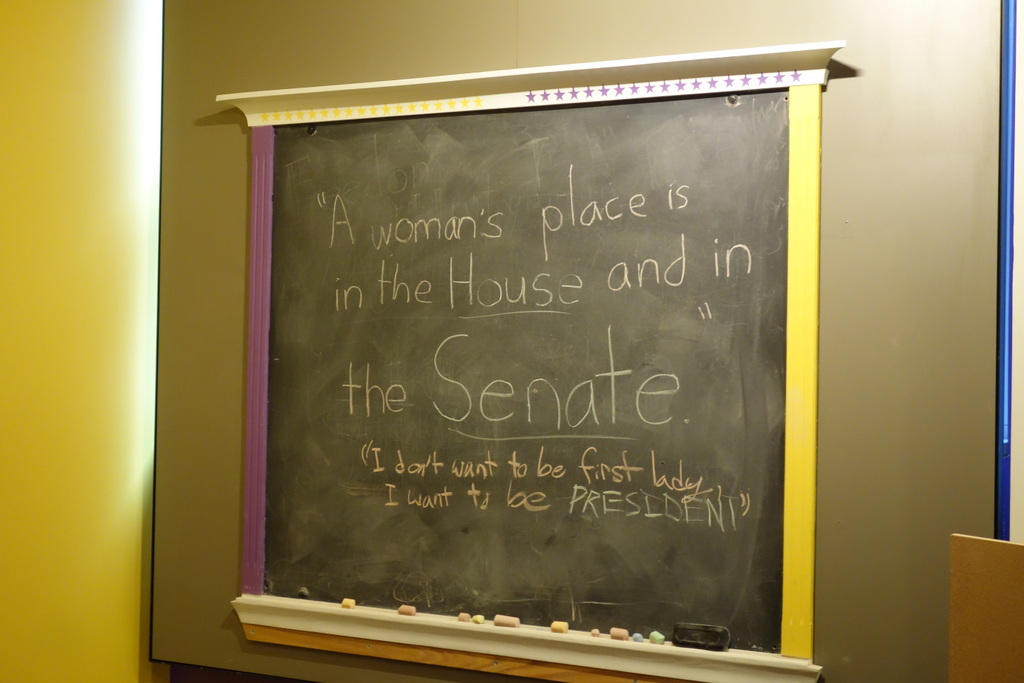 "A woman's place is
in the House and in
the Senate."
"I don't want to be first lady,
I want to be PRESIDENT"